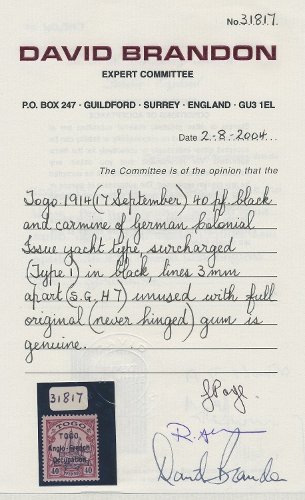 No. 31817.
DAVID BRANDON
EXPERT COMMITTEE
P.O. BOX 247 · GUILDFORD · SURREY · ENGLAND · GU3 1EL
Date 2-8-2004
The Committee is of the opinion that the
Togo 1914 (17 September) 40 pf. black
and carmine of German Colonial
Issue yacht type, surcharged
(Type 1) in black, lines 3mm
apart (S.G. H7) unused with full
original (never hinged) gum is
genuine.
31817
TOGO
TOGO
Anglo-French
Occupation
40 40
David Brandon